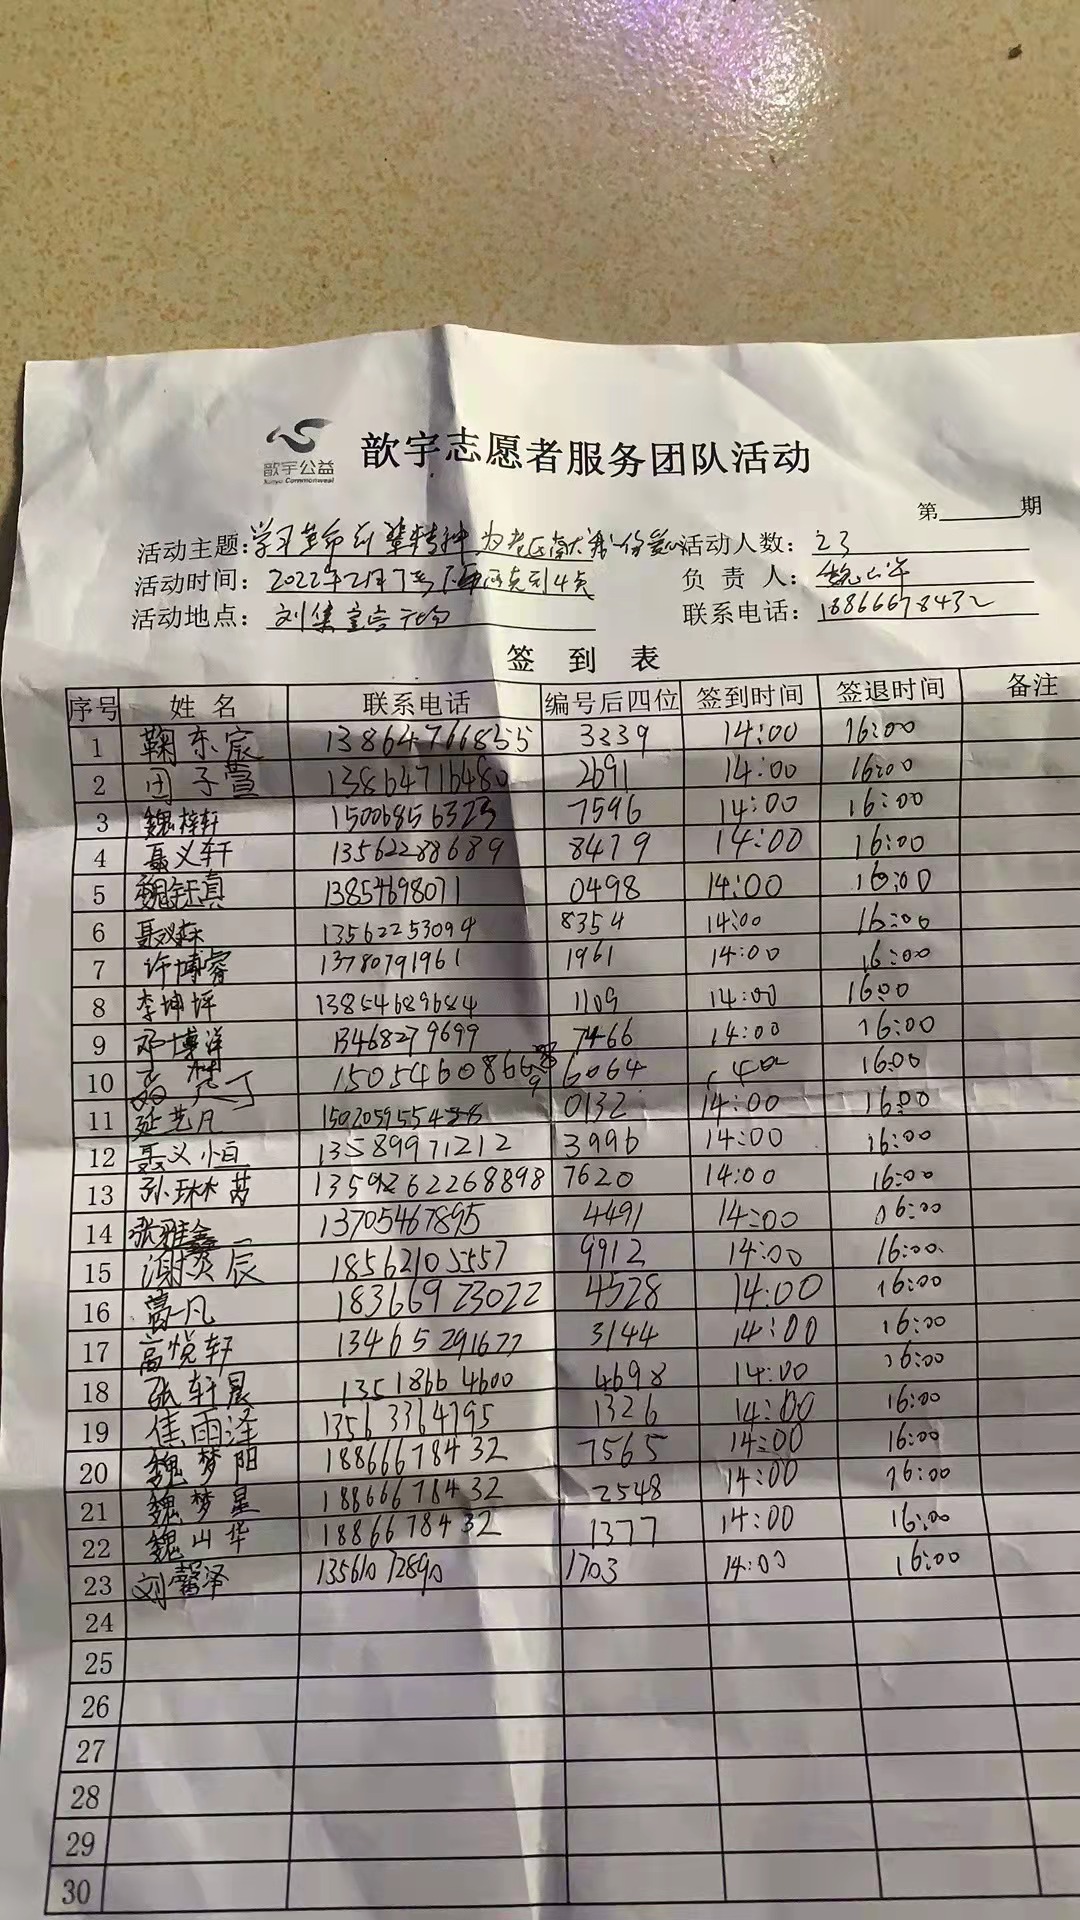 歆宇公益
Xinyu Commonweal
歆宇志愿者服务团队活动
第 期
活动主题: 学习革命先辈精神 为老区 活动人数: 23
活动时间: 2022年2月 下午两点到4点 负 责 人: 魏山华
活动地点: 刘集 联系电话: 18866678432
签 到 表
序号 姓 名 联系电话 编号后四位 签到时间 签退时间 备注
1 鞠东宸 13864766855 3339 14:00 16:00
2 子萱 13864716480 2691 14:00 16:00
3 魏梓轩 15006856323 7596 14:00 16:00
4 聂义轩 13562288689 8479 14:00 16:00
5 魏钰真 13854698071 0498 14:00 16:00
6 聂义森 13562253094 8354 14:00 16:00
7 许博睿 13780791961 1961 14:00 16:00
8 李坤坪 13854689684 1109 14:00 16:00
9 邓博洋 13468279699 7466 14:00 16:00
10 1505460866 6064 16:00
11 延艺凡 0132 14:00 16:00
12 聂义恒 13589971212 3996 14:00 16:00
13 孙琳茜 7620 14:00 16:00
14 张雅鑫 13705467895 4491 14:00 16:00
15 谢昊辰 18562105557 9912 14:00 16:00
16 一凡 18366923022 4528 14:00 16:00
17 高悦轩 13465291677 3144 14:00 16:00
18 张轩晨 13518664600 4698 14:00 16:00
19 雨泽 13563364795 1326 14:00 16:00
20 魏梦阳 18866678432 7565 14:00 16:00
21 魏梦星 18866678432 2548 14:00 16:00
22 魏山华 1886678432 1377 14:00 16:00
23 刘馨泽 13561072890 1703 14:00 16:00
24
25
26
27
28
29
30